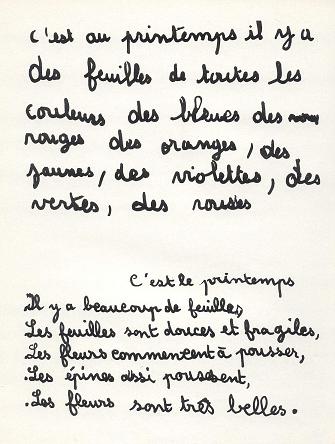 c'est au printemps il y a
des feuilles de toutes les
couleurs des bleues des
rouges des oranges, des
jaunes, des violettes, des
vertes, des rousses
C'est le printemps
Il y a beaucoup de feuilles,
Les feuilles sont douces et fragiles,
Les fleurs commencent à pousser,
.Les épines assi poussent,
.Les fleurs sont très belles.